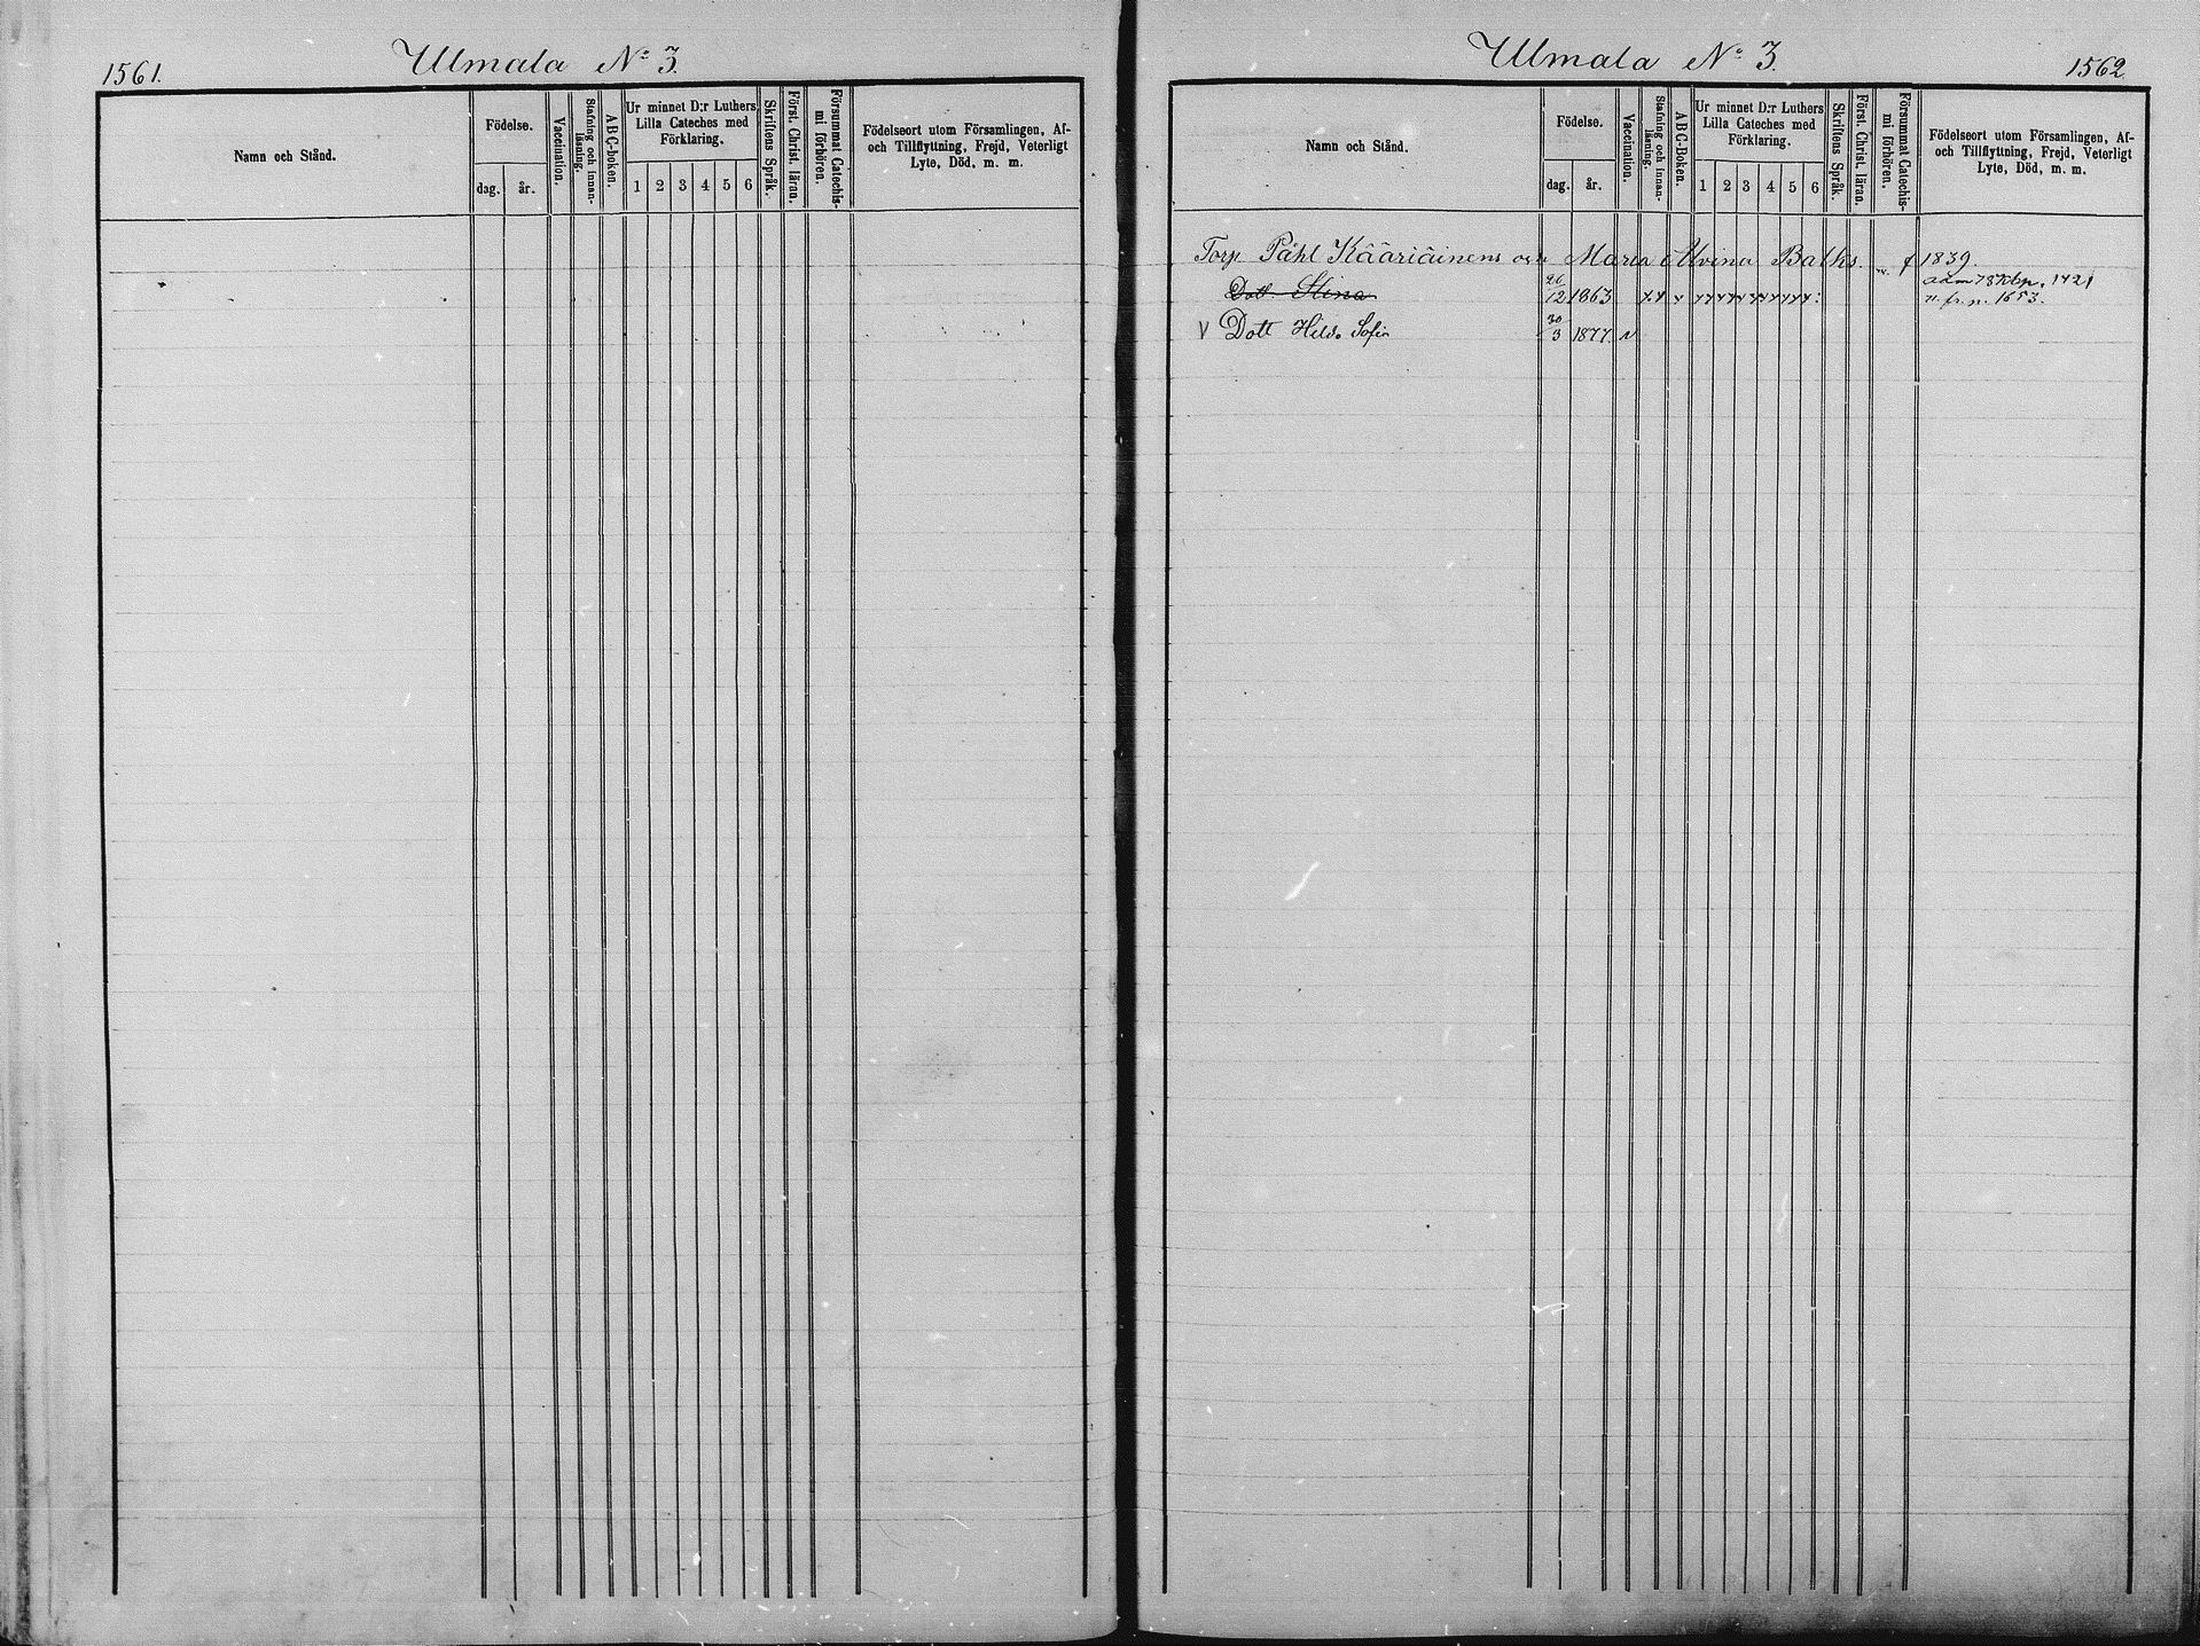 1561.
Ulmala No 3.
Namn och Stånd.
Födelse.
dag.
år.
Vaccination.
Stafning och innan-
läsning.
ABC-boken.
Ur minnet D:r Luthers
Lilla Cateches med
Förklaring.
1 2 3 4 5 6
Skriftens Språk.
Först. Christ. läran.
Försummat Catechis-
mi förhören.
Födelseort utom Församlingen, Af-
och Tillflyttning, Frejd, Veterligt
Lyte, Död, m. m.
Ulmala No 3.
1562
Namn och Stånd.
Födelse.
dag.
år.
Vaccination.
Stafning och innan-
läsning.
ABC-Boken.
Ur minnet D:r Luthers
Lilla Cateches med
Förklaring.
1 2 3 4 5 6
Skriftens Språk.
Först. Christ. läran.
Försummat Catechis-
mi förhören.
Födelseort utom Församlingen, Af-
och Tillflyttning, Frejd, Veterligt
Lyte, Död, m. m.
Torp. Påhl Kääriäinens och Maria Alvina Balks. f 1839.
Dott. Stina 26/12 1863 adm 78 Kbp. 1421
n. fr. p. 1653.
V Dott Hilda Sofia 30/3 1877. v